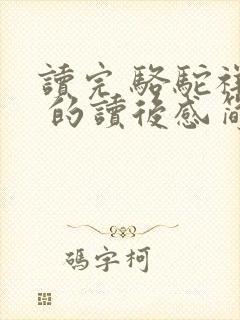 讀完駱駝祥
的讀後感
碼字柯